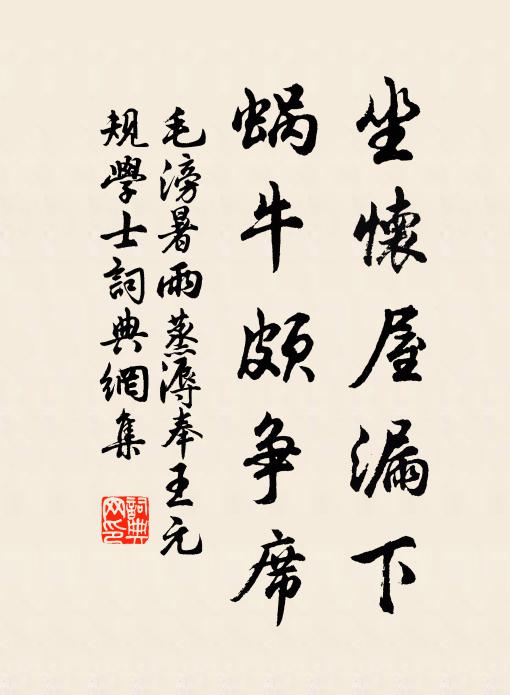 坐懷屋漏下
蝸牛頗争席
毛滂暑雨蒸溽奉王元
規學士詞典網集
詞典
网印